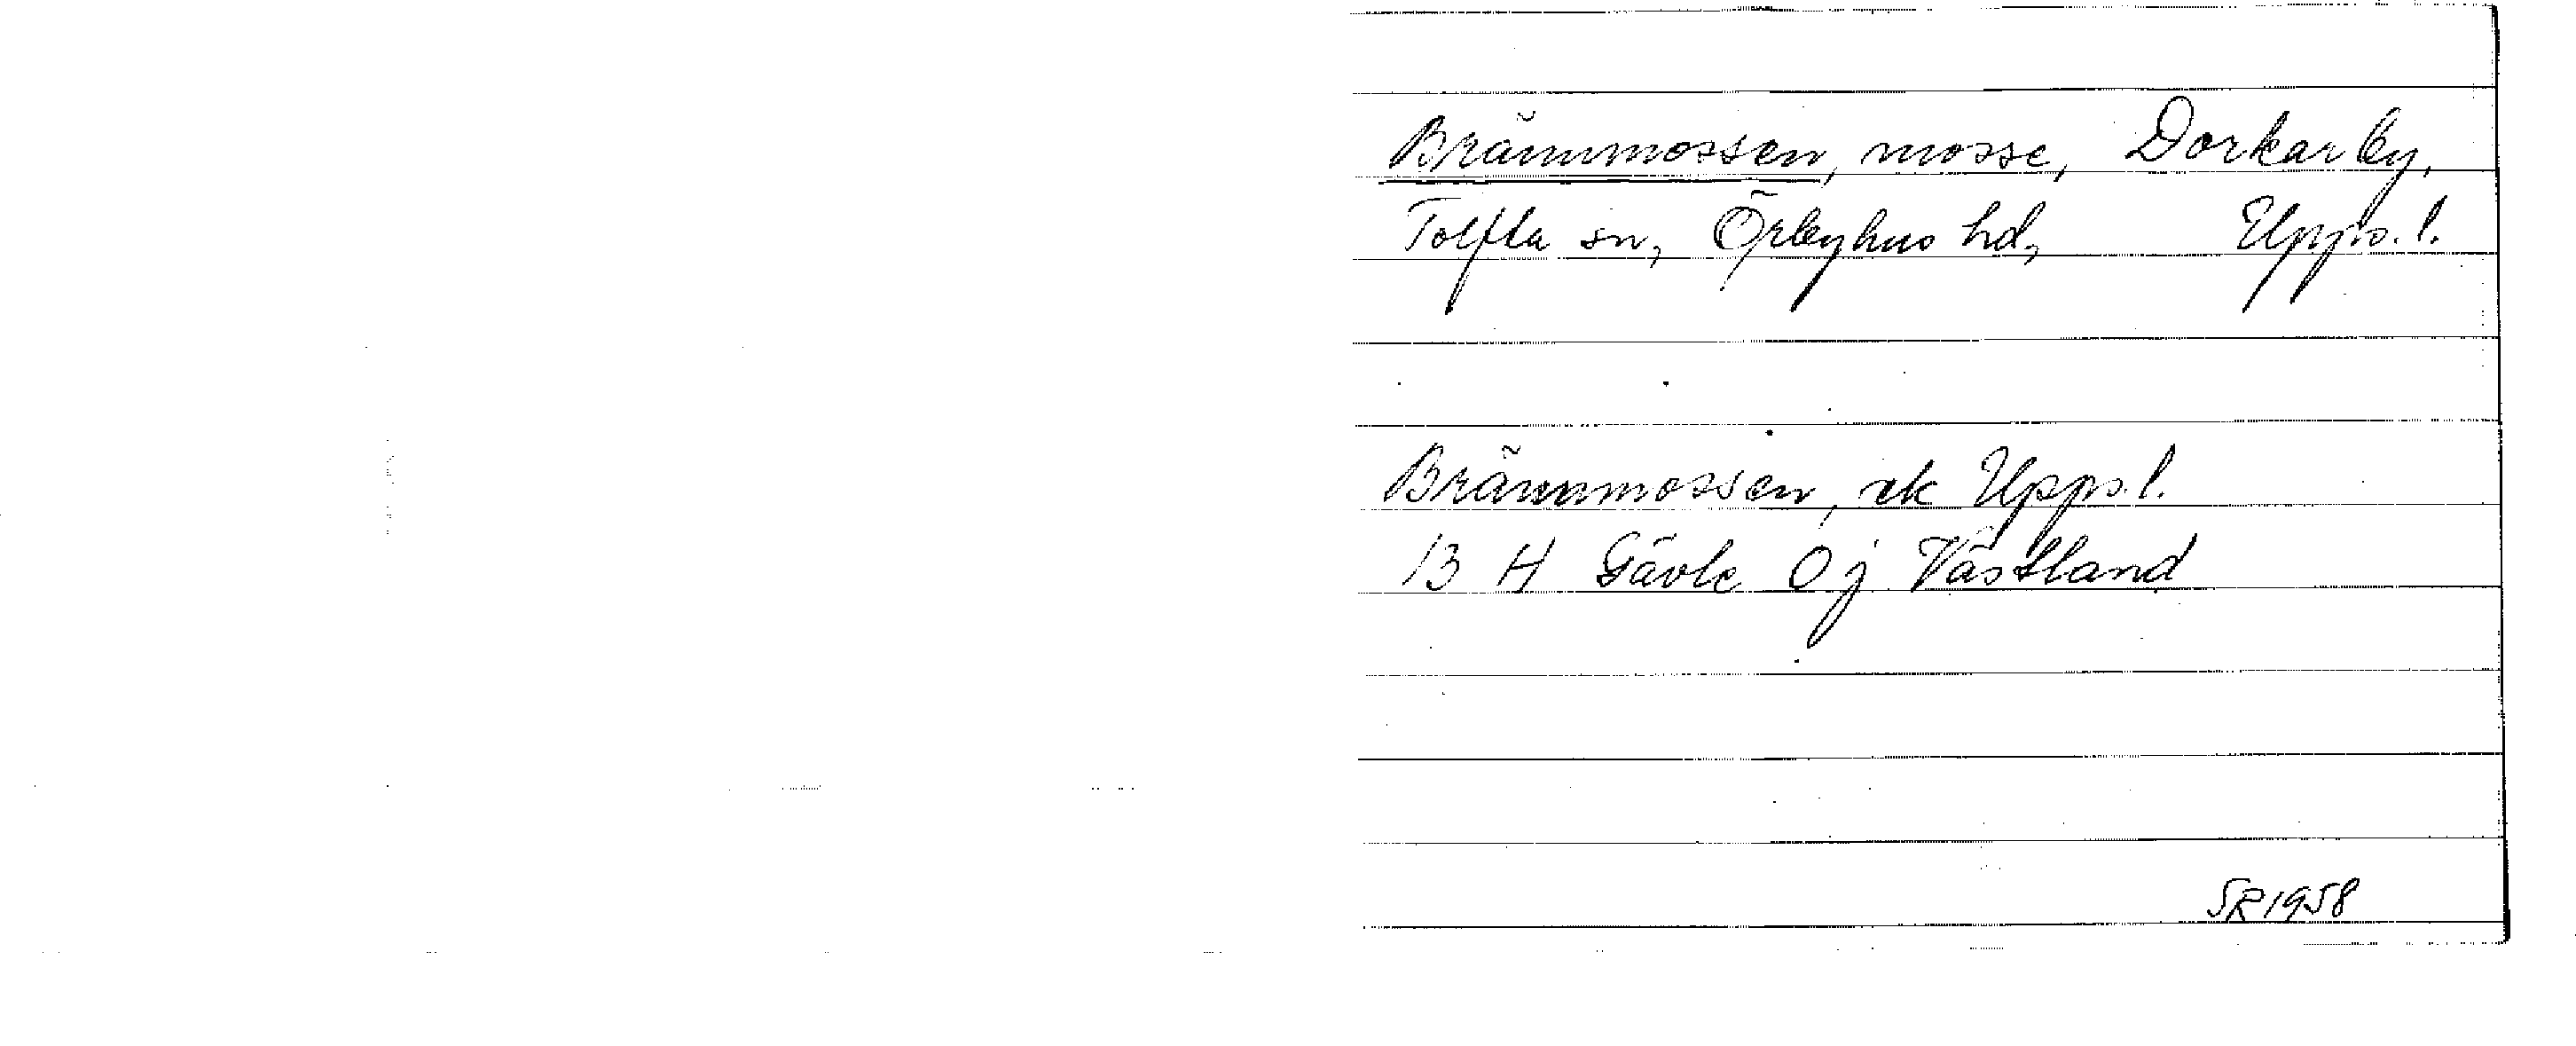 Brännmossen, mosse, Dorkarby,
Tolfta sn, Örbyhus hd, Upps. l.
Brännmossen, ek Upps. l.
13 H Gävle 0 j Västland
SR 1958